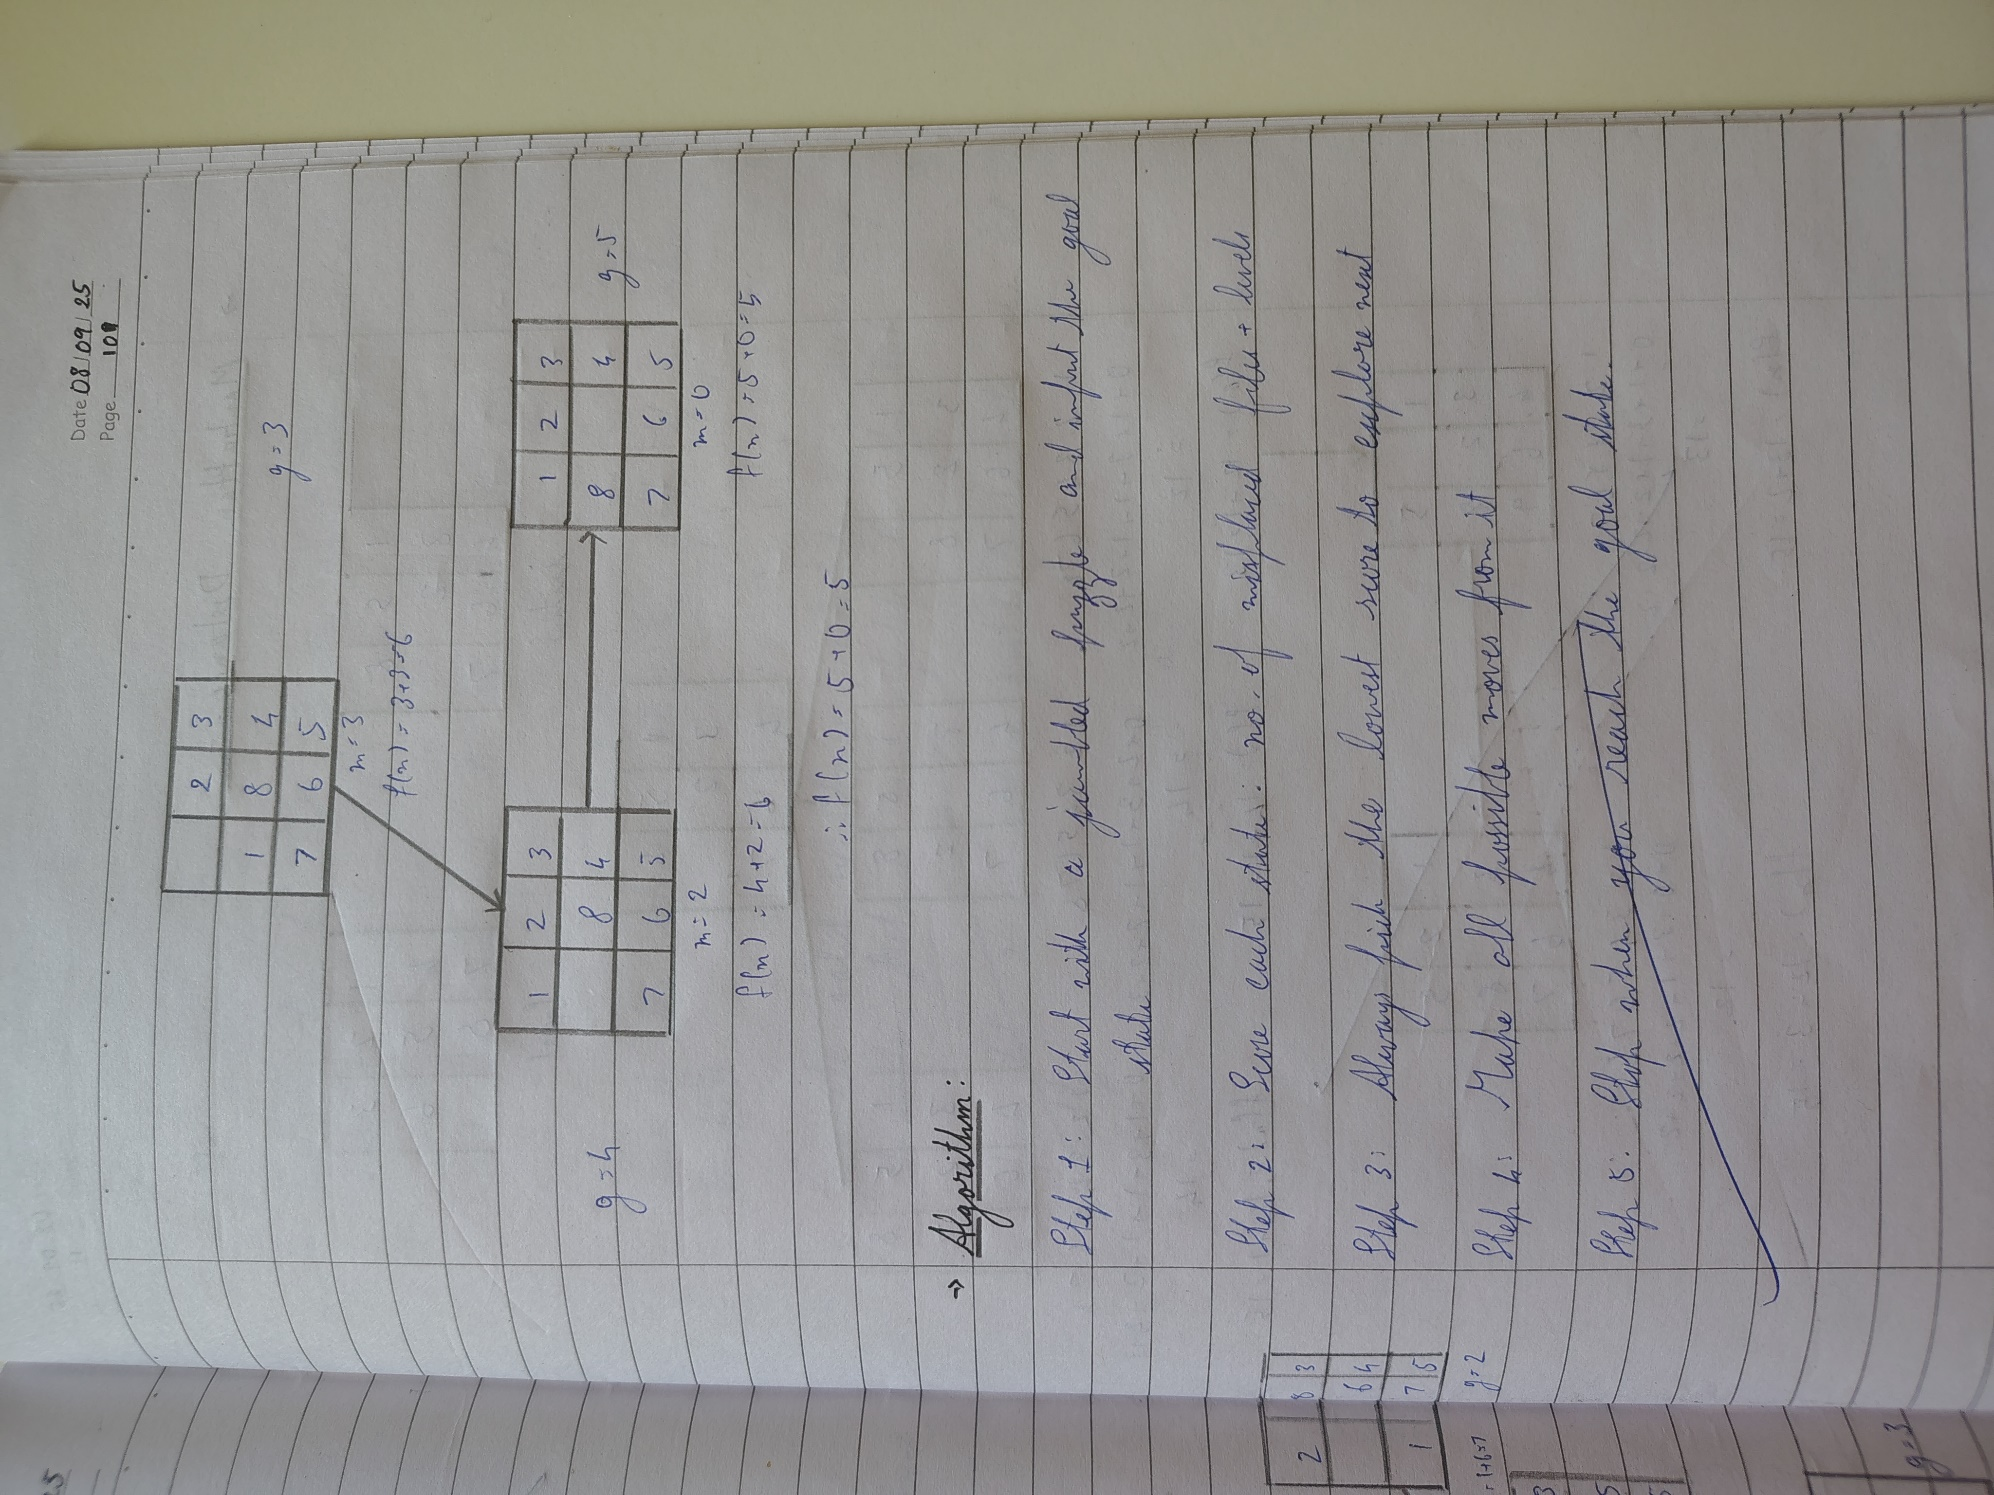 Date 08/09/25
Page 101
2 3
1 8 4
7 6 5
g = 3
m = 3
f(n) = 3+3=6
1 2 3
8 4
7 6 5
g = 4
m = 2
f(n) = 4+2=6
1 2 3
8 4
7 6 5
g = 5
m = 0
f(n) = 5+0=5
∴ f(n) = 5+0=5
→ Algorithm:
Step 1: Start with a jumbled puzzle and input the goal
state
Step 2: Score each state: no. of misplaced tiles + levels
Step 3: Always pick the lowest score to explore next
Step 4: Make all possible moves from it
Step 5: Stop when you reach the goal state.
2 8 3
6 4
1 7 5
g = 2
g = 3